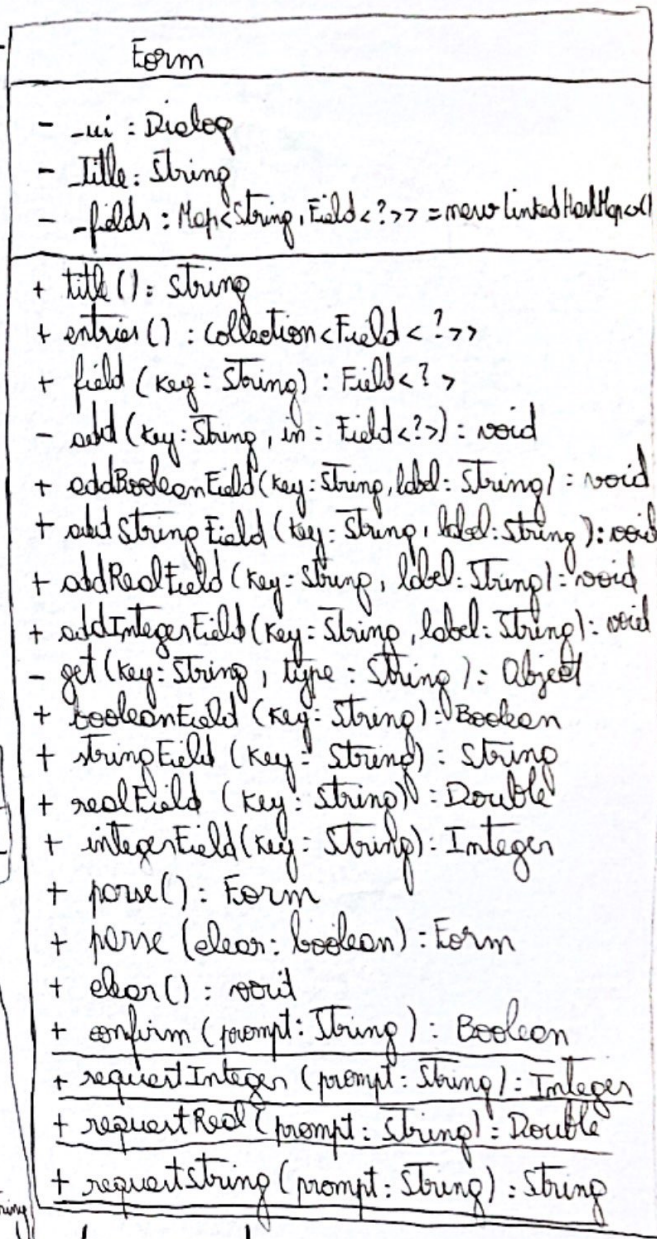 Form
- _ui : Dialog
- _title : String
- _fields : Map<String, Field<?>> = new LinkedHashMap<>()
+ title() : String
+ entries() : Collection<Field<?>>
+ field (key : String) : Field<?>
- add (key : String, in : Field<?>) : void
+ addBooleanField(key : String, label : String) : void
+ addStringField (key : String, label : String) : void
+ addRealField (key : String, label : String) : void
+ addIntegerField(key : String, label : String) : void
- get (key : String, type : String) : Object
+ booleanField (key : String) : Boolean
+ stringField (key : String) : String
+ realField (key : String) : Double
+ integerField(key : String) : Integer
+ parse() : Form
+ parse (clear : boolean) : Form
+ clear() : void
+ confirm (prompt : String) : Boolean
+ requestInteger (prompt : String) : Integer
+ requestReal (prompt : String) : Double
+ requestString (prompt : String) : String